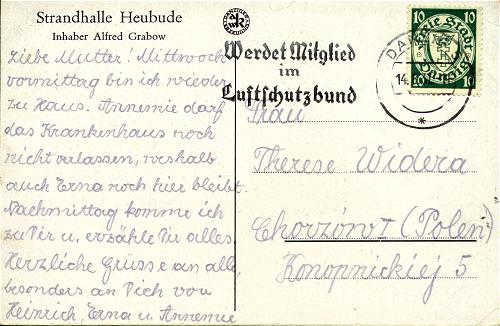 Strandhalle Heubude
Inhaber Alfred Grabow
Liebe Mutter! Mittwoch
vormittag bin ich wieder
zu Haus. Annemie darf
das Krankenhaus noch
nicht verlassen, weshalb
auch Erna noch hier bleibt.
Nachmittag komme ich
zu Dir u. erzähle Dir alles.
Herzliche Grüsse an alle,
besonders an Dich von
Heinrich, Erna u. Annemie
Werdet Mitglied
im
Luftschutzbund
DA
14
*
10 10
Freie Stadt
Danzig
10 10
Frau
Therese Widera
Chorzów I (Polen)
Konopnickiej 5